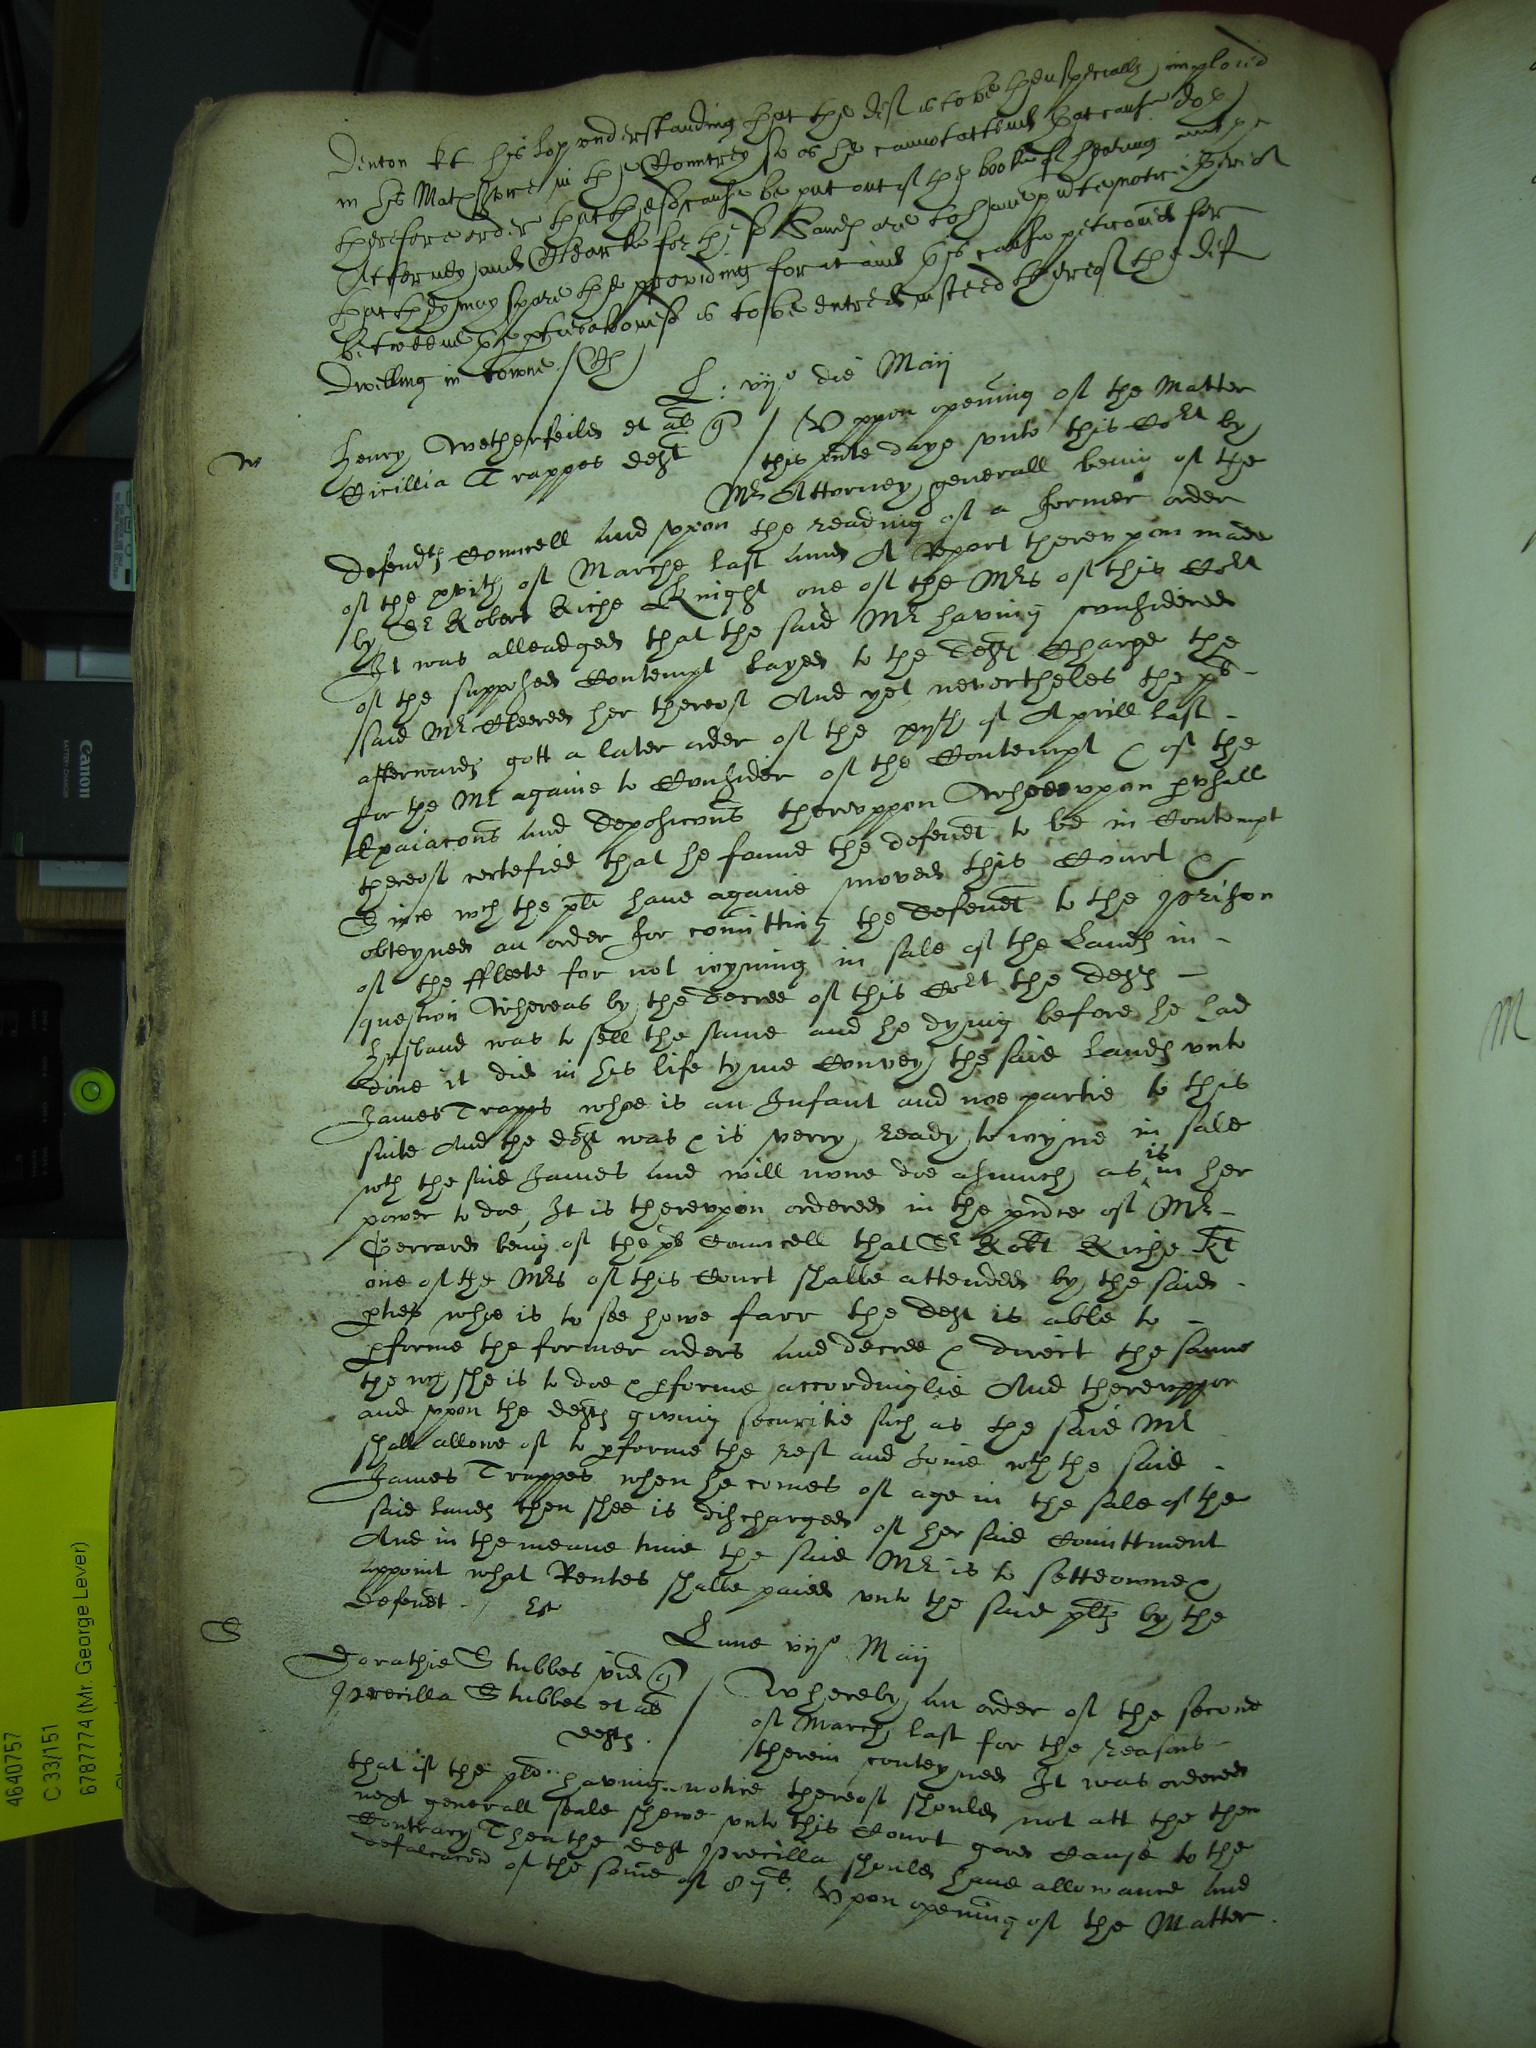 Denton kt his lop understanding that the deft is to be then specially imployed
in his Mats service in the Countrey so as he cannot attend that cause doth
therefore order that the sd cause be put out of the booke of hearing and the
Attorney and Clarke for the sd
that they may spare the providing for it and this cause peticoned for
betweene the is to be entred insteed thereof the deft
dwelling in towne
L: vijo die Maij
w
Henry Wetherfeild et al q
Cicillia Trappes deft
Uppon opening of the Matter
this pnte daye unto this Cort by
Mr Attorney generall being of the
defendts Councell And upon the reading of a former order
of the xvith of Marche last And A Report thereupon made
by Sr Robert Riche Knight one of the Mrs of this Cort
It was alleadged that the said Mr having considered
of the supposed Contempt layed to the deft Charge the
said Mr Cleered her thereof And yet nevertheles the pl
afterwards gott a later order of the of Aprill last
for the Mr againe to Consider of the Contempt & of the
Exaiacons And deposicons thereuppon Whereupon
thereof certefied that he found the defendt to be in Contempt
Since wch the pl have againe moved this Court &
obteyned an order for comitting the defendt to the prison
of the Fleete for not ioyning in sale of the lands in
question Whereas by the decree of this Cort the defts
husband was to sell the same and he dying before he had
done it did in his life tyme Convey the said lands unto
James Trapps whoe is an Infant and noe partie to this
suite And the deft was & is verry ready to ioyne in sale
wth the said James And will nowe doe asmuch as is in her
power to doe, It is thereupon ordered in the pnce of Mr
Gerrard being of the pl Councell that Sr Robt Riche kt
one of the Mrs of this Court shalbe attended by the said
pties whoe is to see howe farr the deft is able to
pforme the former orders And decree & direct the same
the wch she is to doe & pforme accordinglie And thereuppon
and upon the defts giving securitie such as the said Mr
shall allowe of to pforme the rest and Joine wth the said
James Trappes when he comes of age in the sale of the
said lands then shee is discharged of her said Comittment
And in the meane time the said Mr is to sett downe &
appoint what Rentes shalbe paied unto the said plts by the
defendt
S
Lune vijo Maij
Dorathie Stubbes vid q
Precilla Stubbes et al
defts
Whereby An order of the second
of March last for the reasons
therein conteyned It was ordered
that if the pl having notice thereof should not att the then
next generall seale shewe unto this Court good Cause to the
Contrary Then the deft Precilla should have allowance And
defalcacon of the some of 87l. Upon opening of the Matter
M
Canon
BATTERY CHARGER
4640757
C 33/151
6787774 (Mr. George Lever)